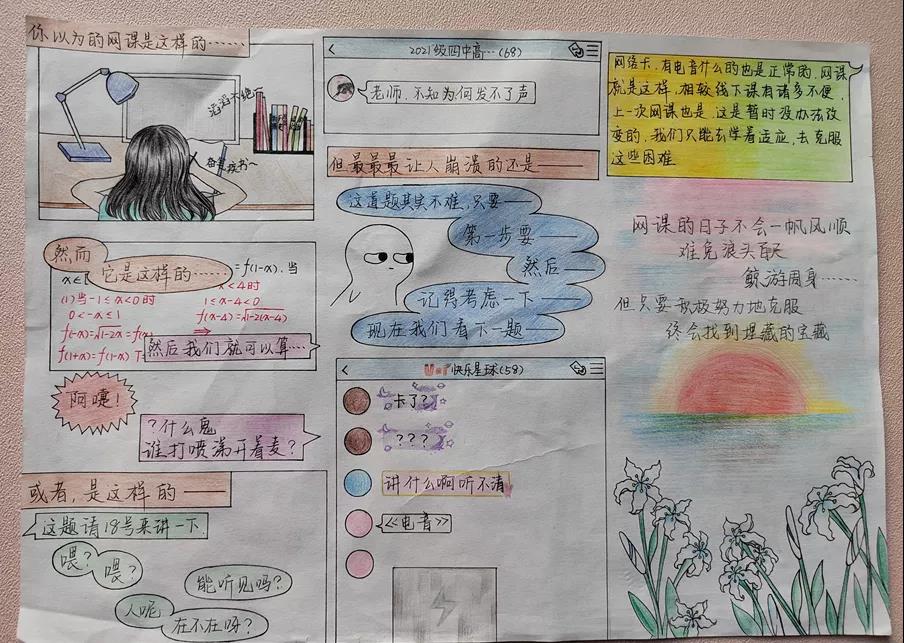 你以为的网课是这样的……
滔滔不绝听
奋笔疾书~
然而
它是这样的……
=f(1-x).当
x∈[
x<4时
(1)当-1≤x<0时
1≤x-4<0
0<-x≤1
f(x-4)=√1-2(x-4)
f(-x)=√1-2x=f(x)
⇒
f(1+x)=f(1-x)下=
然后我们就可以算…
阿嚏!
?什么鬼
谁打喷嚏开着麦?
或者,是这样的——
这题请18号来讲一下
喂?
喂?
能听见吗?
人呢
在不在呀?
2021级四中高…(68)
老师,不知为何发不了声
但最最最让人崩溃的还是——
这道题其实不难,只要——
第一步要——
然后——
记得考虑一下——
现在我们看下一题——
快乐星球(58)
卡了?
???
讲什么啊听不清
《电音》
网络卡,有电音什么的也是正常的,网课
就是这样,相较线下课有诸多不便,
上一次网课也是,这是暂时没办法改
变的,我们只能去学着适应,去克服
这些困难
网课的日子不会一帆风顺
难免浪头
鲸游周身……
但只要积极努力地克服
终会找到埋藏的宝藏